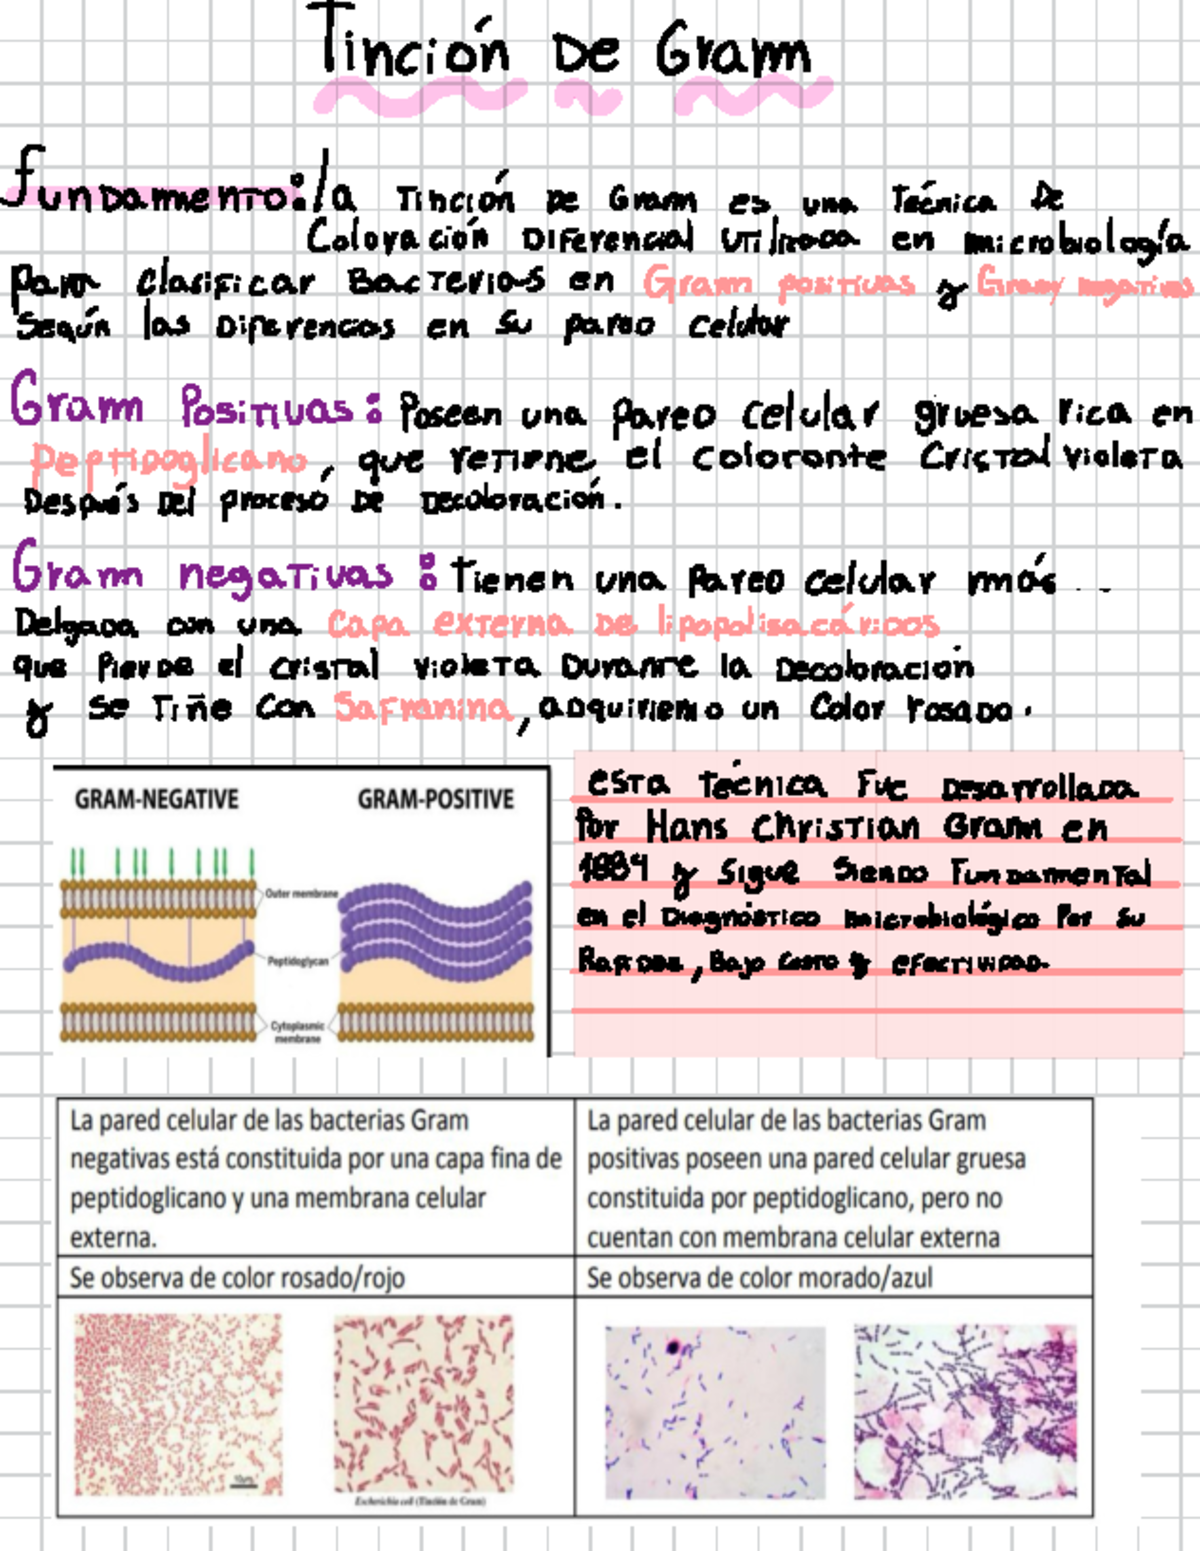 Tinción De Gram
fundamento: la Tinción De Gram es una Técnica De
Coloración Diferencial utilizada en microbiología
para clasificar Bacterias en Gram positivas y Gram negativas
según las Diferencias en su pared celular
Gram Positivas: Poseen una pared celular gruesa rica en
peptidoglicano, que retiene el colorante Cristal violeta
Después Del proceso De Decoloración.
Gram negativas: Tienen una Pared celular más ..
Delgada con una capa externa De lipopolisacáridos
que Pierde el cristal violeta Durante la Decoloración
y se Tiñe Con Safranina, adquiriendo un Color rosado.
GRAM-NEGATIVE GRAM-POSITIVE
Outer membrane
Peptidoglycan
Cytoplasmic
membrane
esta Técnica Fue Desarrollada
Por Hans Christian Gram en
1884 y Sigue Siendo Fundamental
en el Diagnóstico microbiológico Por su
Rapidez, Bajo Costo y efectividad.
La pared celular de las bacterias Gram
negativas está constituida por una capa fina de
peptidoglicano y una membrana celular
externa.
La pared celular de las bacterias Gram
positivas poseen una pared celular gruesa
constituida por peptidoglicano, pero no
cuentan con membrana celular externa
Se observa de color rosado/rojo
Se observa de color morado/azul
Escherichia coli (Tinción de Gram)